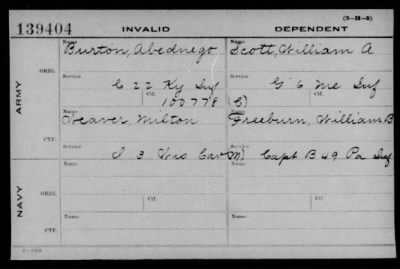 (3-11-5)
139404 INVALID DEPENDENT
ARMY
ORIG.
Name Burton, Abednego Name Scott, William A
Service C 22 Ky Inf Service G 6 Me Inf
Ctf. 100778 Ctf. (C)
CTF.
Name Weaver, Milton Name Freeburn, William B
Service I 3 Wis Cav Service (M) Capt B 49 Pa Inf
NAVY
ORIG.
Name Name
Service Ctf. Service Ctf.
CTF.
Name Name
Service Service